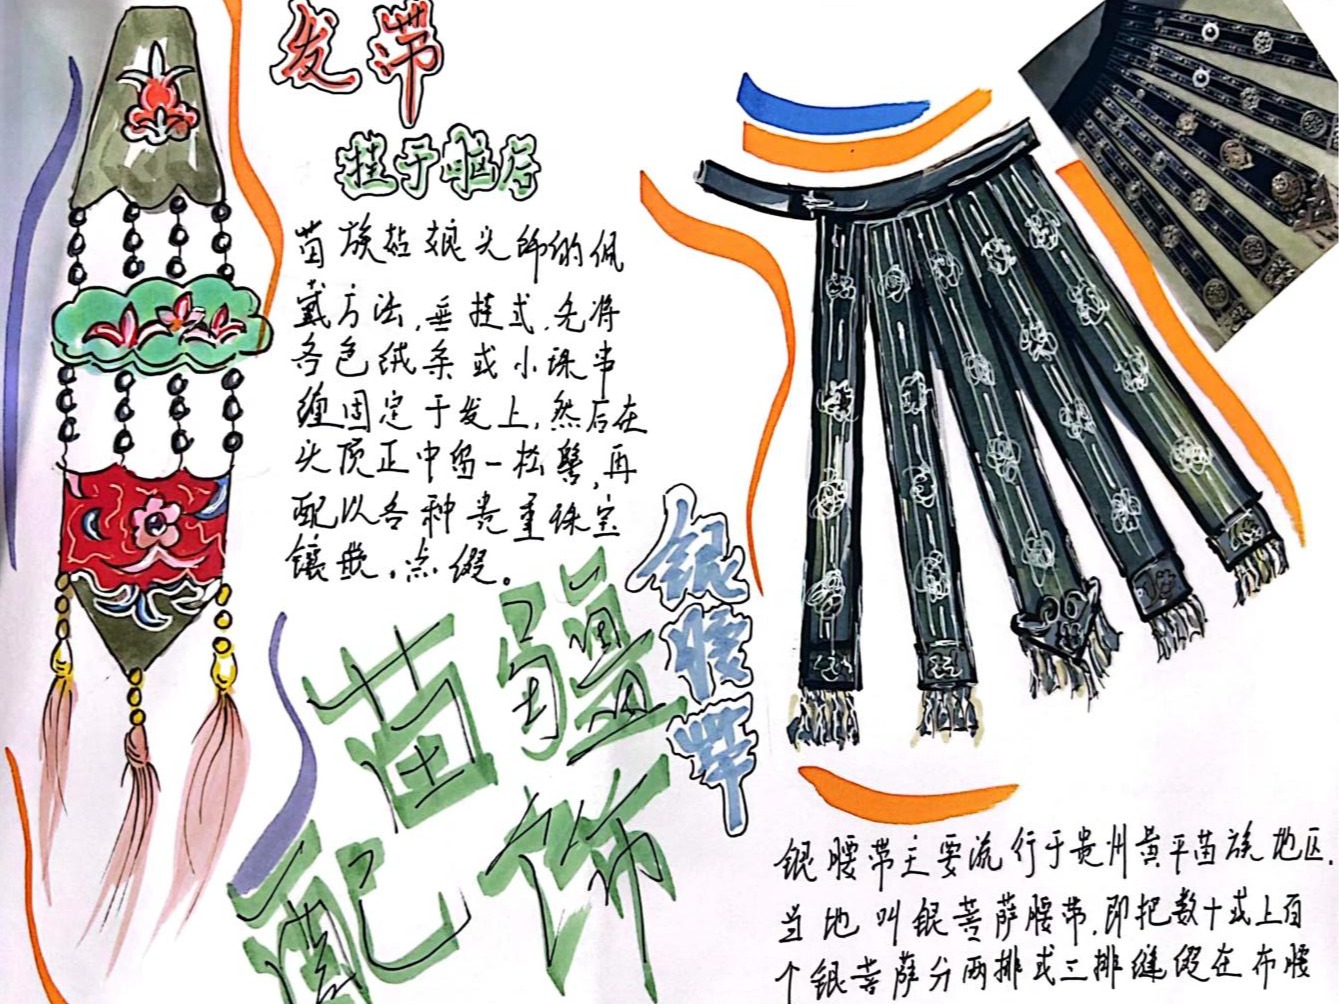 发带
挂于脑后
苗族姑娘头饰的佩
戴方法，垂挂式，先将
各色绒条或小珠串
缠固定于发上，然后在
头顶正中留一松髻，再
配以各种贵重珠宝
镶嵌，点缀。
苗疆
配饰
银腰带
银腰带主要流行于贵州黄平苗族地区，
当地叫银菩萨腰带，即把数十或上百
个银菩萨分两排或三排缝缀在布腰